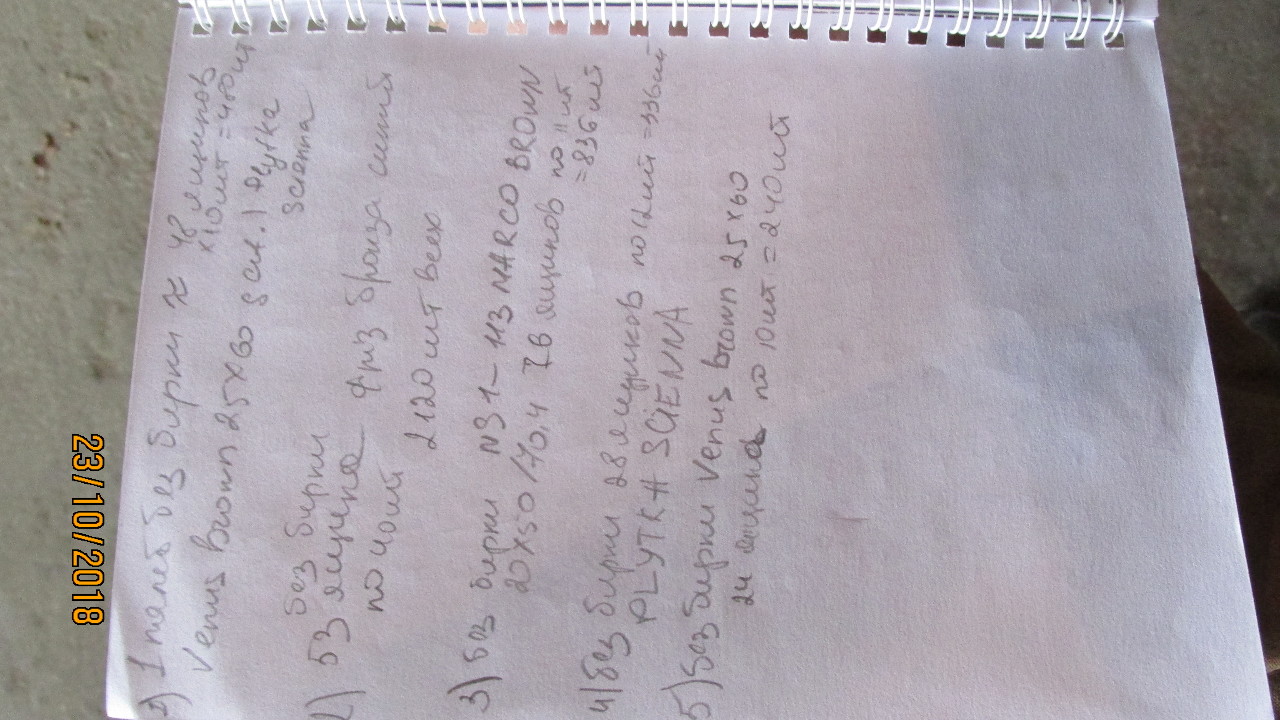 1) 1 палет без бирки ≈ 48 ящиков
x10шт = 480шт
Venus Brown 25x60 8 скл. 1 plytka
scienna
2) без бирки
53 ящика Фтз бронза синий
по 40шт
2120 шт всех
3) без бирки N31-113 MARCO BROWN
20x50/70,4 76 ящиков по 11шт
=836шт
4) без бирки 28 ящиков по 12шт =336шт
PLYTKA SCIENNA
5) без бирки Venus brown 25x60
24 ящика по 10шт = 240шт
23/10/2018